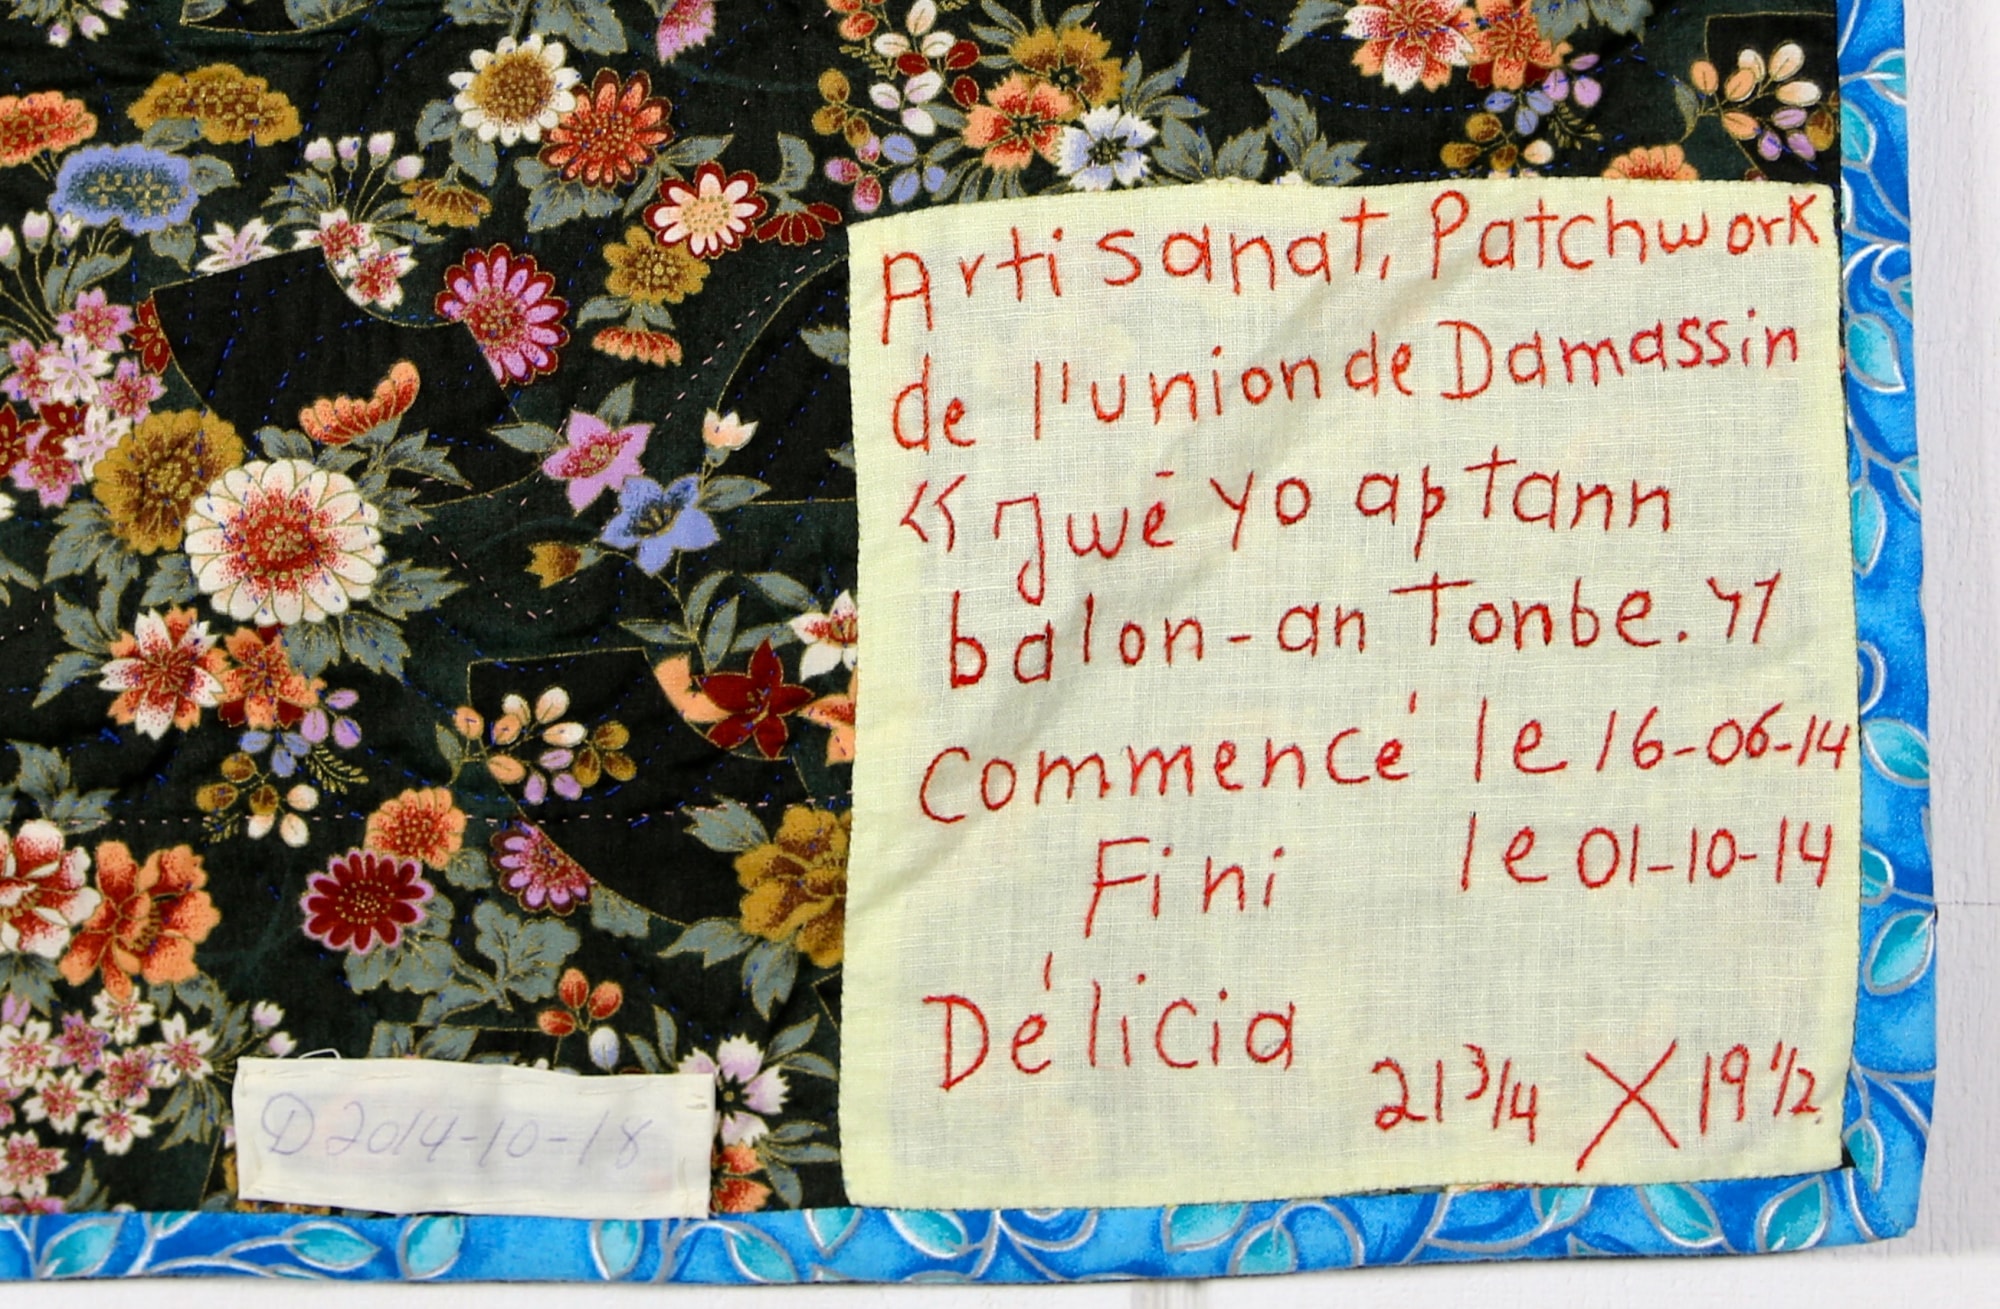 Artisanat, Patchwork
de l'union de Damassin
« Jwé yo ap tann
balon-an Tonbe. »
Commencé le 16-06-14
Fini le 01-10-14
Délicia
21 3/4 X 19 1/2
D 2014-10-18